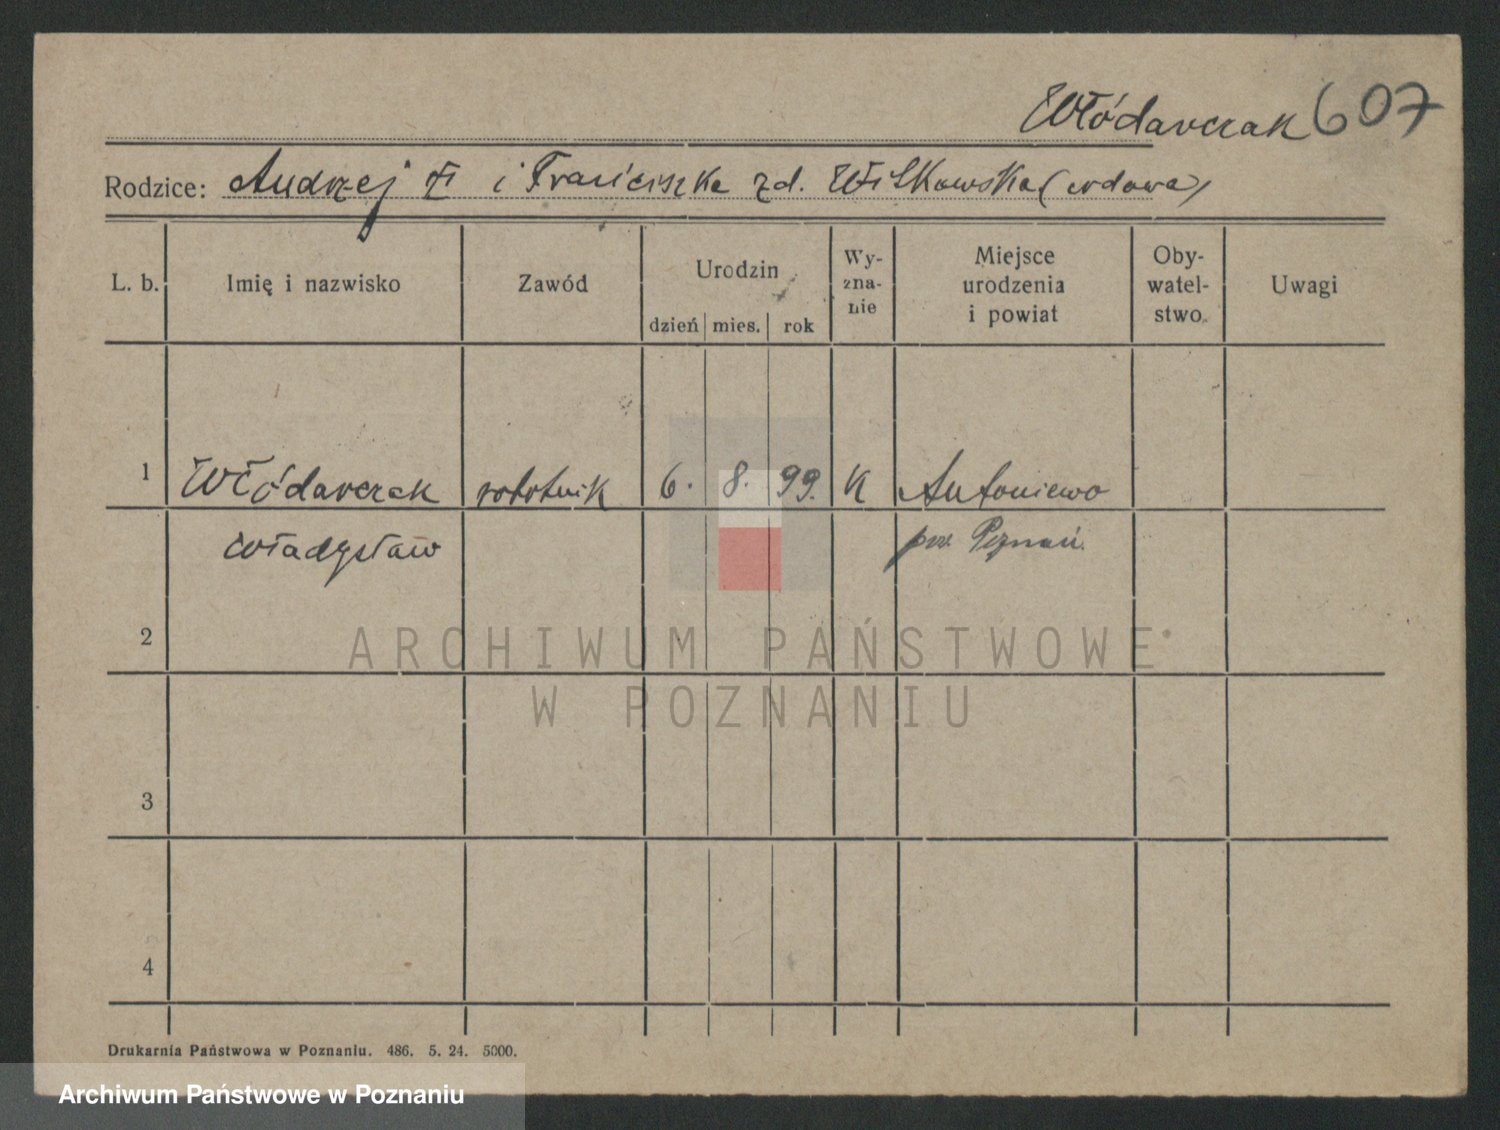 Włódarczak 607
Rodzice: Andrzej i Franciszka zd. Wilkowska (wdowa)
L. b. Imię i nazwisko Zawód Urodzin Wy- Miejsce Oby- Uwagi
zna- urodzenia watel-
nie i powiat stwo.
dzień mies. rok
1 Włódarczak robotnik 6. 8. 99. K Antoniewo
Władysław pow. Poznań.
2
ARCHIWUM PAŃSTWOWE
W POZNANIU
3
4
Drukarnia Państwowa w Poznaniu. 486. 5. 24. 5000.
Archiwum Państwowe w Poznaniu